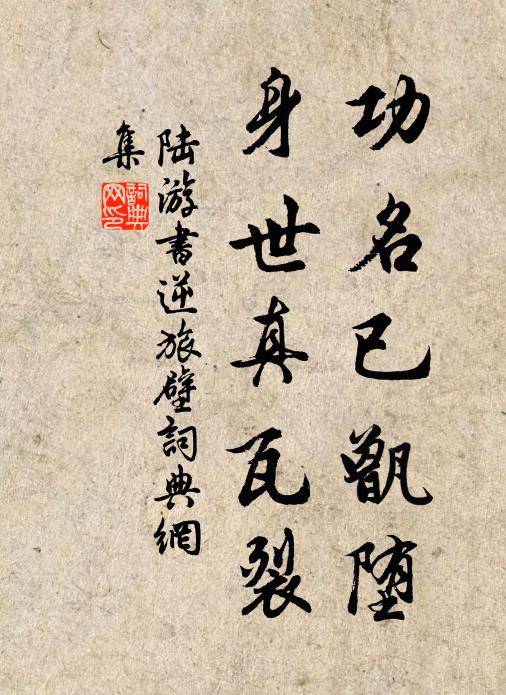 功名已甑堕
身世真瓦裂
陆游書逆旅壁詞典網
集
詞典
网印